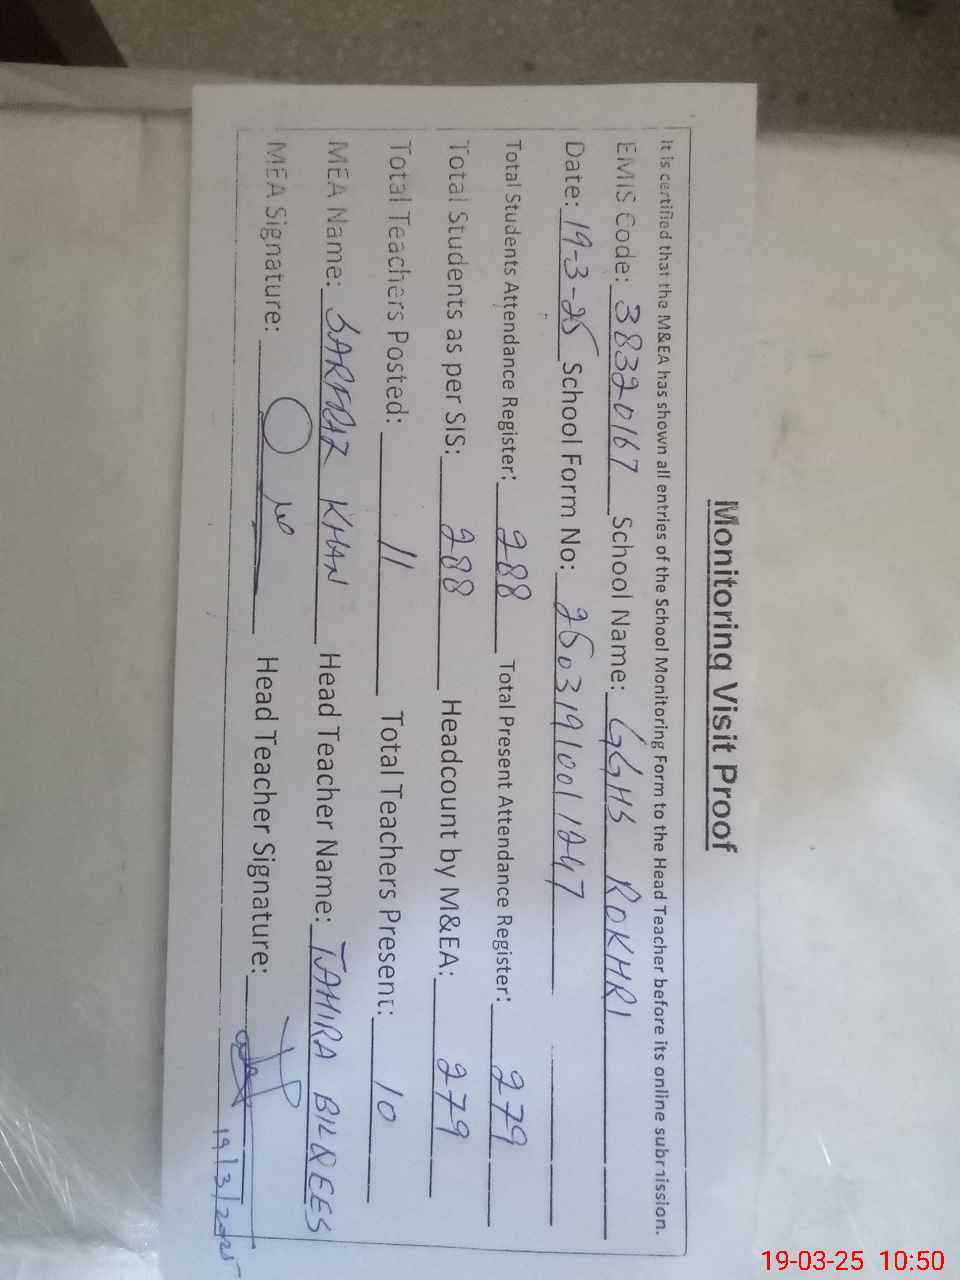 Monitoring Visit Proof
It is certified that the M&EA has shown all entries of the School Monitoring Form to the Head Teacher before its online submission.
EMIS Code: 38320167 School Name: GGHS ROKHRI
Date: 19-3-25 School Form No: 2503191001247
Total Students Attendance Register: 288 Total Present Attendance Register: 279
Total Students as per SIS: 288 Headcount by M&EA: 279
Total Teachers Posted: 11 Total Teachers Present: 10
MEA Name: SARFRAZ KHAN Head Teacher Name: TAHIRA BILQEES
MEA Signature: Head Teacher Signature:
19/3/2025
19-03-25 10:50